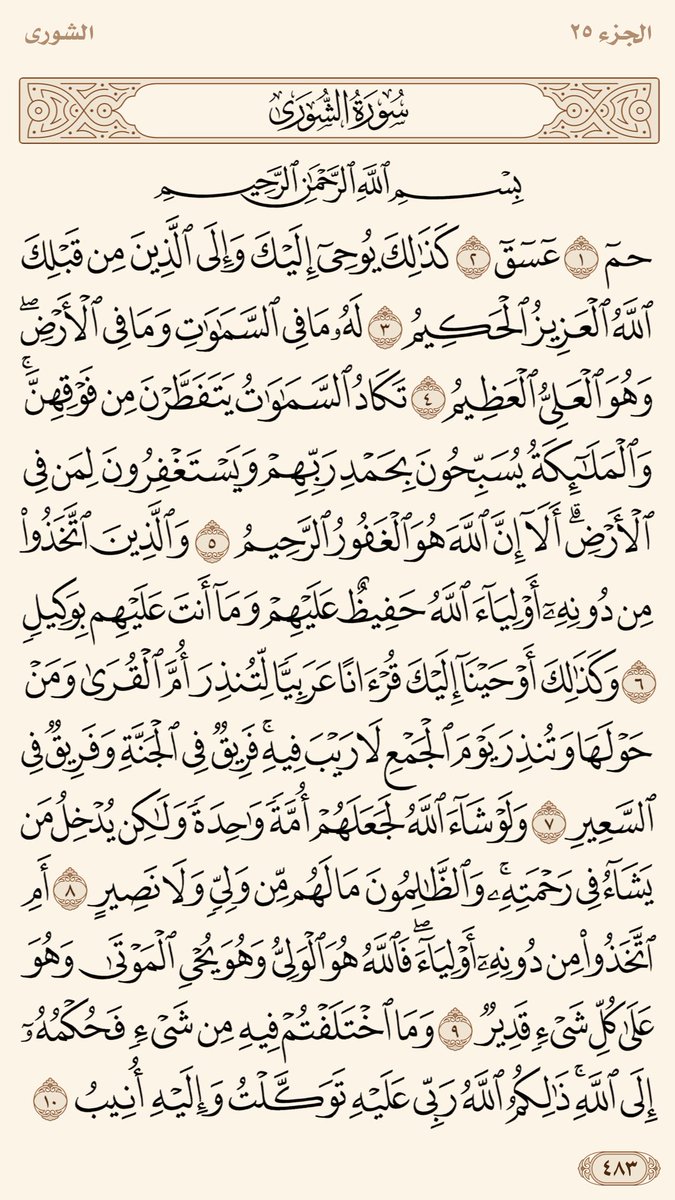 الجزء ٢٥
الشورى
سُورَةُ الشُّورَىٰ
بِسْمِ ٱللَّهِ ٱلرَّحْمَٰنِ ٱلرَّحِيمِ
حمٓ ١ عٓسٓقٓ ٢ كَذَٰلِكَ يُوحِىٓ إِلَيْكَ وَإِلَى ٱلَّذِينَ مِن قَبْلِكَ
ٱللَّهُ ٱلْعَزِيزُ ٱلْحَكِيمُ ٣ لَهُۥ مَا فِى ٱلسَّمَٰوَٰتِ وَمَا فِى ٱلْأَرْضِۖ
وَهُوَ ٱلْعَلِىُّ ٱلْعَظِيمُ ٤ تَكَادُ ٱلسَّمَٰوَٰتُ يَتَفَطَّرْنَ مِن فَوْقِهِنَّۚ
وَٱلْمَلَٰٓئِكَةُ يُسَبِّحُونَ بِحَمْدِ رَبِّهِمْ وَيَسْتَغْفِرُونَ لِمَن فِى
ٱلْأَرْضِۗ أَلَآ إِنَّ ٱللَّهَ هُوَ ٱلْغَفُورُ ٱلرَّحِيمُ ٥ وَٱلَّذِينَ ٱتَّخَذُوا۟
مِن دُونِهِۦٓ أَوْلِيَآءَ ٱللَّهُ حَفِيظٌ عَلَيْهِمْ وَمَآ أَنتَ عَلَيْهِم بِوَكِيلٍ
٦ وَكَذَٰلِكَ أَوْحَيْنَآ إِلَيْكَ قُرْءَانًا عَرَبِيًّا لِّتُنذِرَ أُمَّ ٱلْقُرَىٰ وَمَنْ
حَوْلَهَا وَتُنذِرَ يَوْمَ ٱلْجَمْعِ لَا رَيْبَ فِيهِۚ فَرِيقٌ فِى ٱلْجَنَّةِ وَفَرِيقٌ فِى
ٱلسَّعِيرِ ٧ وَلَوْ شَآءَ ٱللَّهُ لَجَعَلَهُمْ أُمَّةً وَٰحِدَةً وَلَٰكِن يُدْخِلُ مَن
يَشَآءُ فِى رَحْمَتِهِۦۚ وَٱلظَّٰلِمُونَ مَا لَهُم مِّن وَلِىٍّ وَلَا نَصِيرٍ ٨ أَمِ
ٱتَّخَذُوا۟ مِن دُونِهِۦٓ أَوْلِيَآءَۖ فَٱللَّهُ هُوَ ٱلْوَلِىُّ وَهُوَ يُحْىِ ٱلْمَوْتَىٰ وَهُوَ
عَلَىٰ كُلِّ شَىْءٍ قَدِيرٌ ٩ وَمَا ٱخْتَلَفْتُمْ فِيهِ مِن شَىْءٍ فَحُكْمُهُۥٓ
إِلَى ٱللَّهِۚ ذَٰلِكُمُ ٱللَّهُ رَبِّى عَلَيْهِ تَوَكَّلْتُ وَإِلَيْهِ أُنِيبُ ١٠
٤٨٣